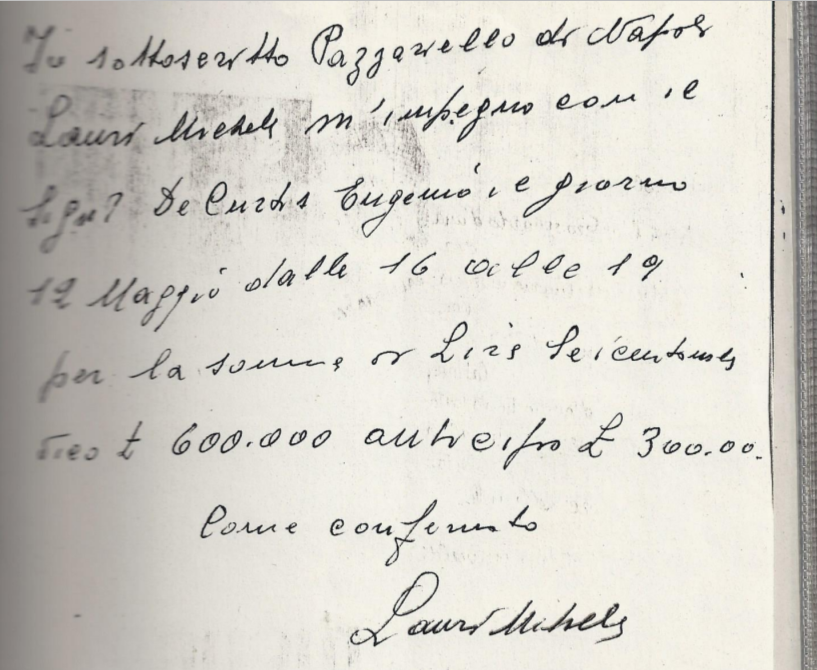 Io sottoscritto Pazzariello di Napoli
Lauri Michele m'impegno con il
Sigr De Curtis Eugenio il giorno
12 Maggio dalle 16 alle 19
per la somma di Lire Seicentomila
dico £ 600.000 anticipo £ 300.00.
Come confermato
Lauri Michele